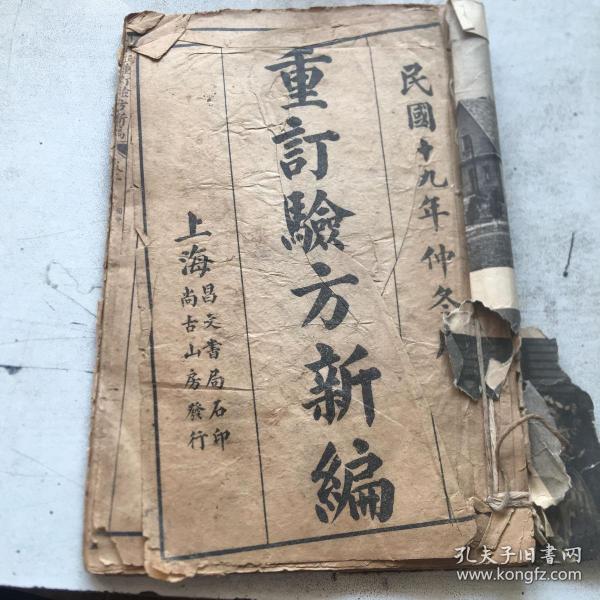 民國十九年仲冬月
重訂驗方新編
上海昌文書局石印
尚古山房發行
孔夫子旧書网
www.kongfz.com